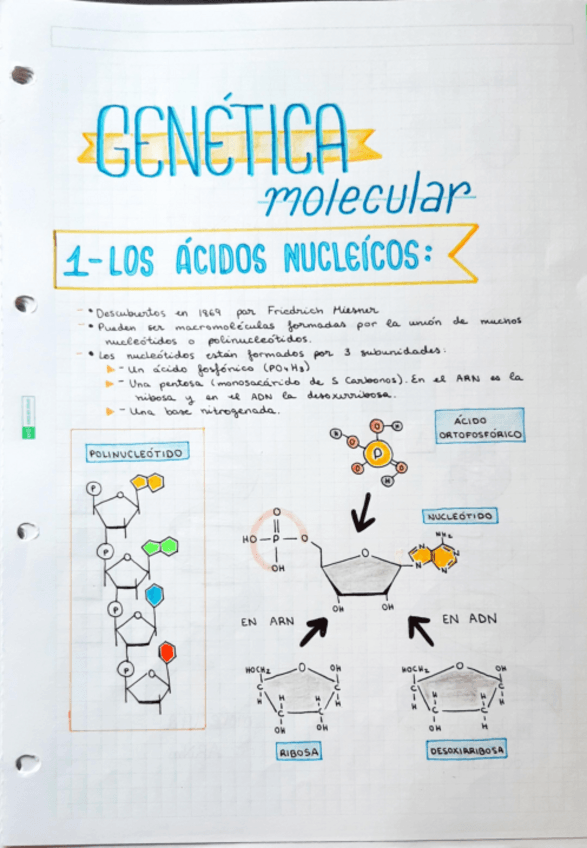 GENÉTICA
molecular
1-LOS ÁCIDOS NUCLEÍCOS:
• Descubiertos en 1869 por Friedrich Miesner
• Pueden ser macromoléculas formadas por la unión de muchos
nucleótidos o polinucleótidos.
• Los nucleótidos están formados por 3 subunidades:
- Un ácido fosfónico (PO4H3)
- Una pentosa (monosacárido de 5 Carbonos). En el ARN es la
ribosa y en el ADN la desoxirribosa.
- Una base nitrogenada.
ÁCIDO
ORTOFOSFÓRICO
POLINUCLEÓTIDO
H O O H P O O H
NUCLEÓTIDO
P
P
P
P
O
HO P O
OH
O
NH2
N N N N
OH OH
EN ARN
EN ADN
HOCH2 O OH
C C
H H H H
C C
OH OH
HOCH2 O OH
C C
H H H H
C C
OH H
RIBOSA
DESOXIRRIBOSA